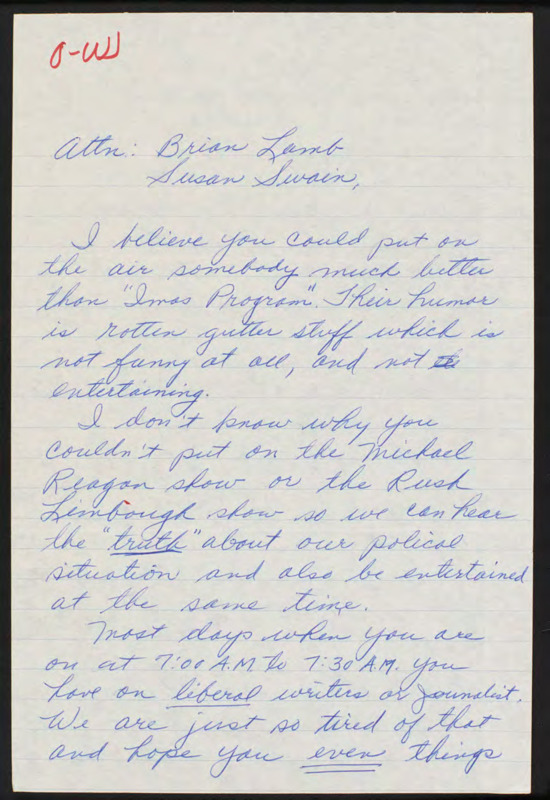 O-W
Attn: Brian Lamb
Susan Swain,
I believe you could put on
the air somebody much better
than "Imas Program". Their humor
is rotten gutter stuff which is
not funny at all, and not
entertaining.
I don't know why you
couldn't put on the Michael
Reagan show or the Rush
Limbough show so we can hear
the "truth" about our polical
situation and also be entertained
at the same time.
Most days when you are
on at 7:00 A.M to 7:30 A.M. you
have on liberal writers or journalist.
We are just so tired of that
and hope you even things